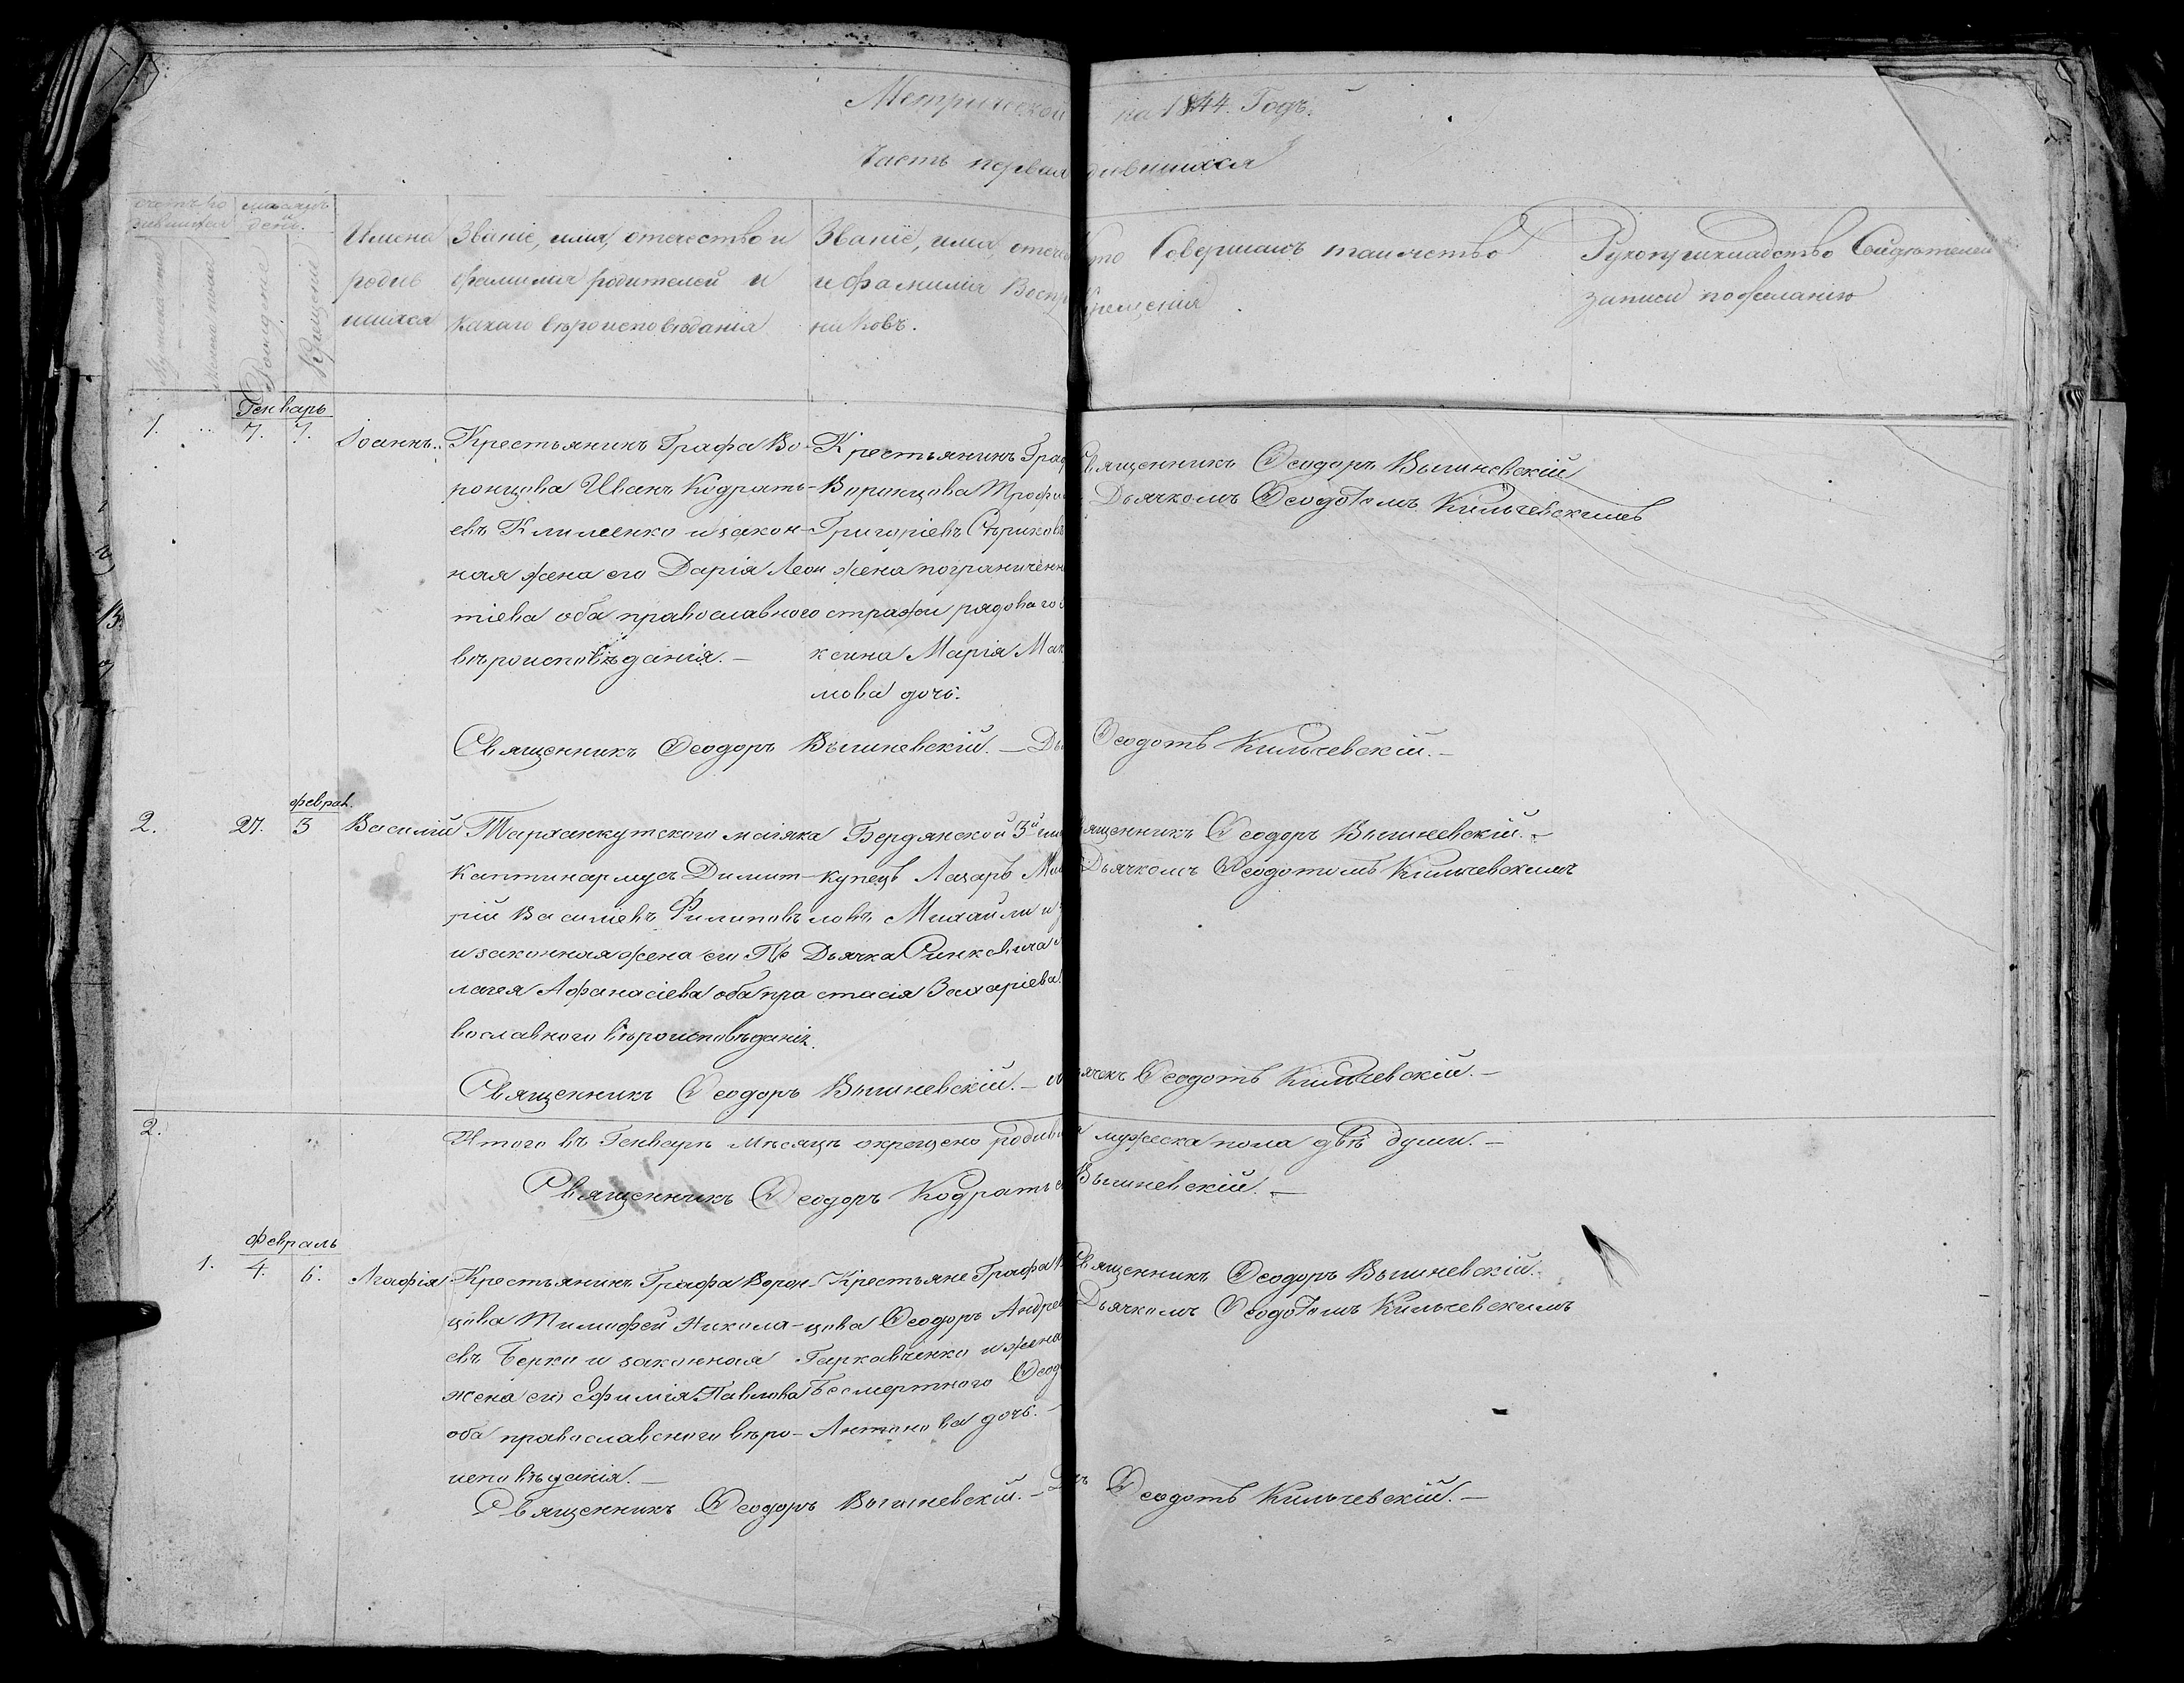 Метрической на 1844. Годъ.
Часть первая о родившихся
мѣсяцъ и день.
Рожденія
Крещенія
Имена родив шихся
Званіе, имя, отечество и фамилія родителей и какаго вѣроисповѣданія
Званіе, имя, отече и фамилія Воспр никовъ.
Кто Совершалъ таинство Крещенія
Рукоприкладство Свидѣтелей записи по желанію
Генварь
1. 7. 7. Іоаннъ.
Крестьянинъ Графа Во-
ронцова Иванъ Кодрать-
евъ Клименко и закон-
ная жена его Дарія Леон
тіева оба православного
вѣроисповѣданія. —
Крестьянинъ Граф
Воронцова Трофи
Григоріевъ
жена пограниченн
стражи рядоваго
ксина Марія Мак
мова дочь.
Священникъ Ѳеодоръ Вышневскій
Дьячкомъ Ѳеодотомъ Кильчевскимъ
Священникъ Ѳеодоръ Вышневскій. — Дь Ѳеодотъ Кильчевскій. —
феврал.
2. 27. 3 Василій
Тарханкутского маяка
Каптинармусъ Димит-
рій Василіевъ Филиповъ
и законная жена его Пе
лагея Афанасіева оба пра
вославного вѣроисповѣданія.
Бердянской 3й ги
купецъ Лазаръ Ми
ловъ Михайли и
Дьячка Синкевича
стасія Захаріева
Священникъ Ѳеодоръ Вышневскій. —
Дьячкомъ Ѳеодотомъ Кильчевскимъ
Священникъ Ѳеодоръ Вышневскій. — ячекъ Ѳеодотъ Кильчевскій. —
2. Итого въ Генварѣ Мѣсяцѣ окрещено родив мужеска пола двѣ души. —
Священникъ Ѳеодоръ Кодратьев Вышневскій. —
Февраль
1. 4. 6. Агафія
Крестьянинъ Графа Ворон-
цова Тимофей Никола-
евъ Берко и законная
жена его Ефимія Павлова
оба православного вѣро-
исповѣданія. —
Крестьяне Графа В
цова Ѳеодоръ Андрее
Гаркавченко и жена
Бесмертного Ѳеод
Антонова дочь. —
Священникъ Ѳеодоръ Вышневскій.
Дьячкомъ Ѳеодотомъ Кильчевскимъ
Священникъ Ѳеодоръ Вышневскій. — Д Ѳеодотъ Кильчевскій. —